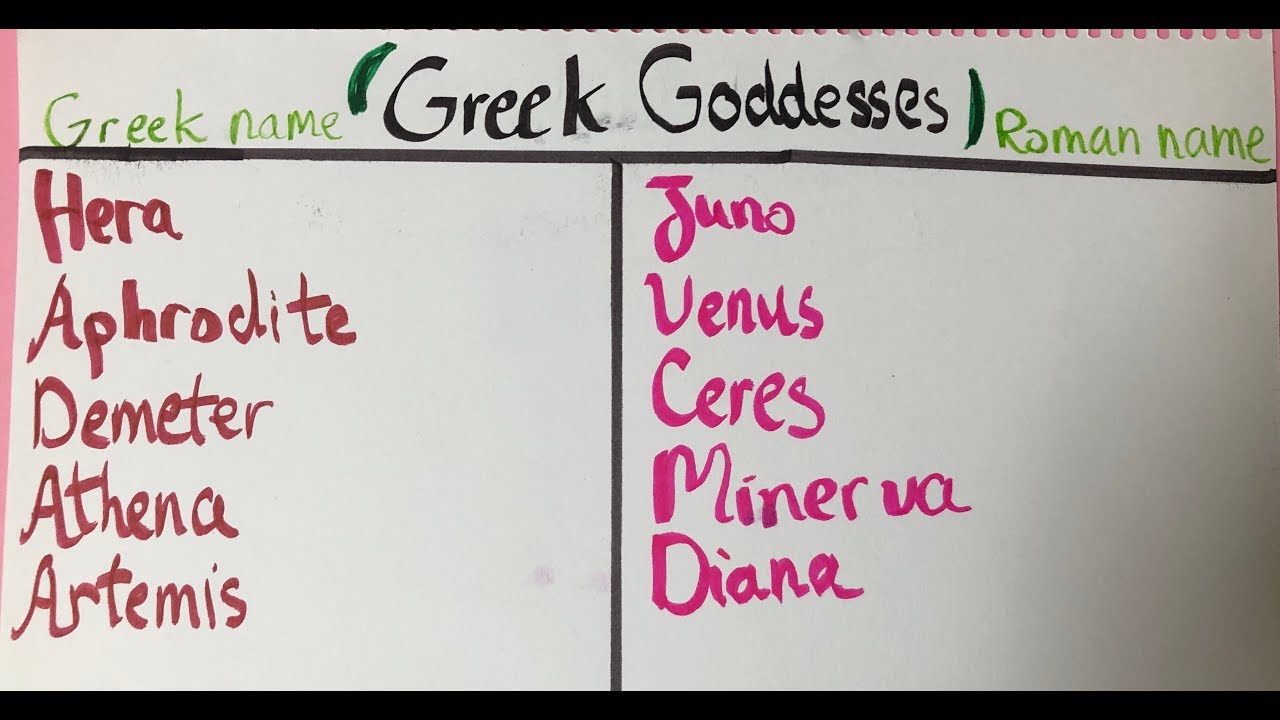 Greek name (Greek Goddesses) Roman name
Hera Juno
Aphrodite Venus
Demeter Ceres
Athena Minerva
Artemis Diana